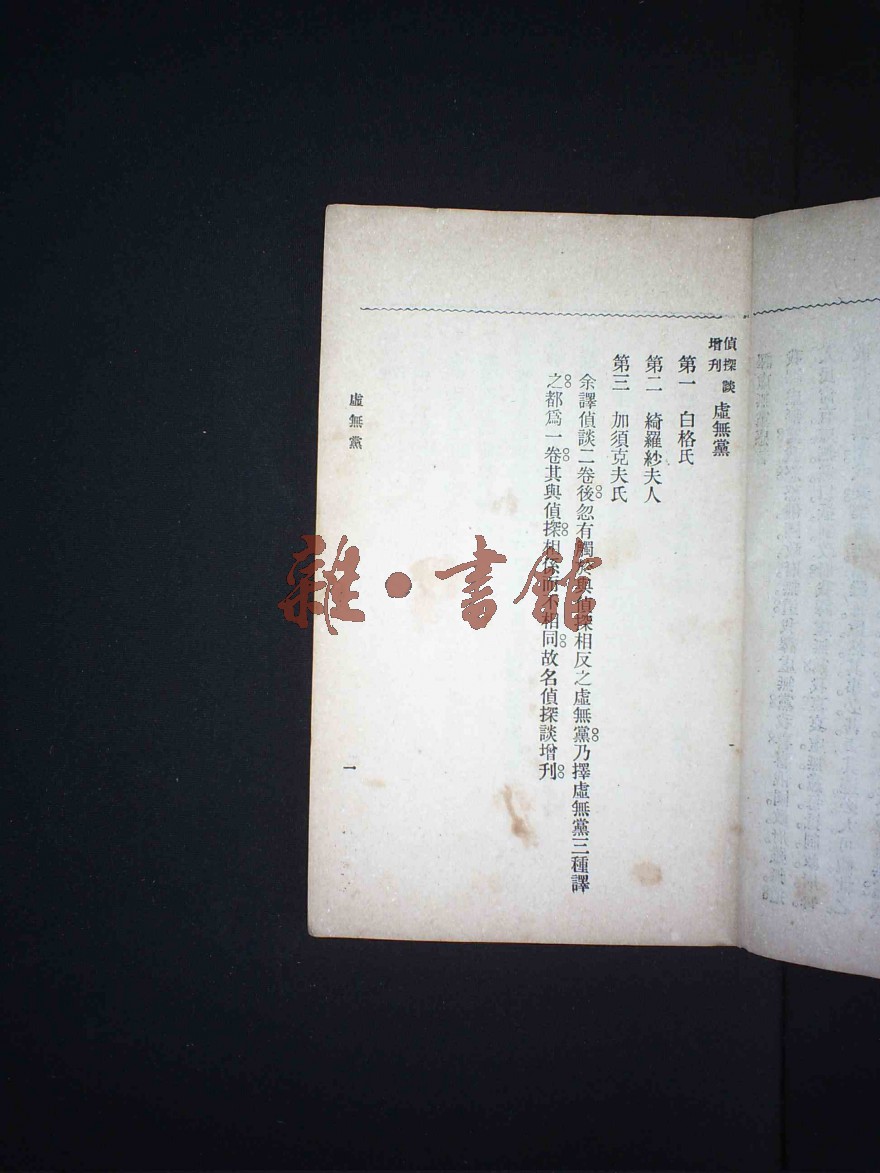 偵探談增刊 虛無黨
第一 白格氏
第二 綺羅紗夫人
第三 加須克夫氏
余譯偵談二卷後忽有觸於與偵探相反之虛無黨乃擇虛無黨三種譯
之都爲一卷其與偵探相係而不相同故名偵探談增刊
虛無黨 一
雜·書館